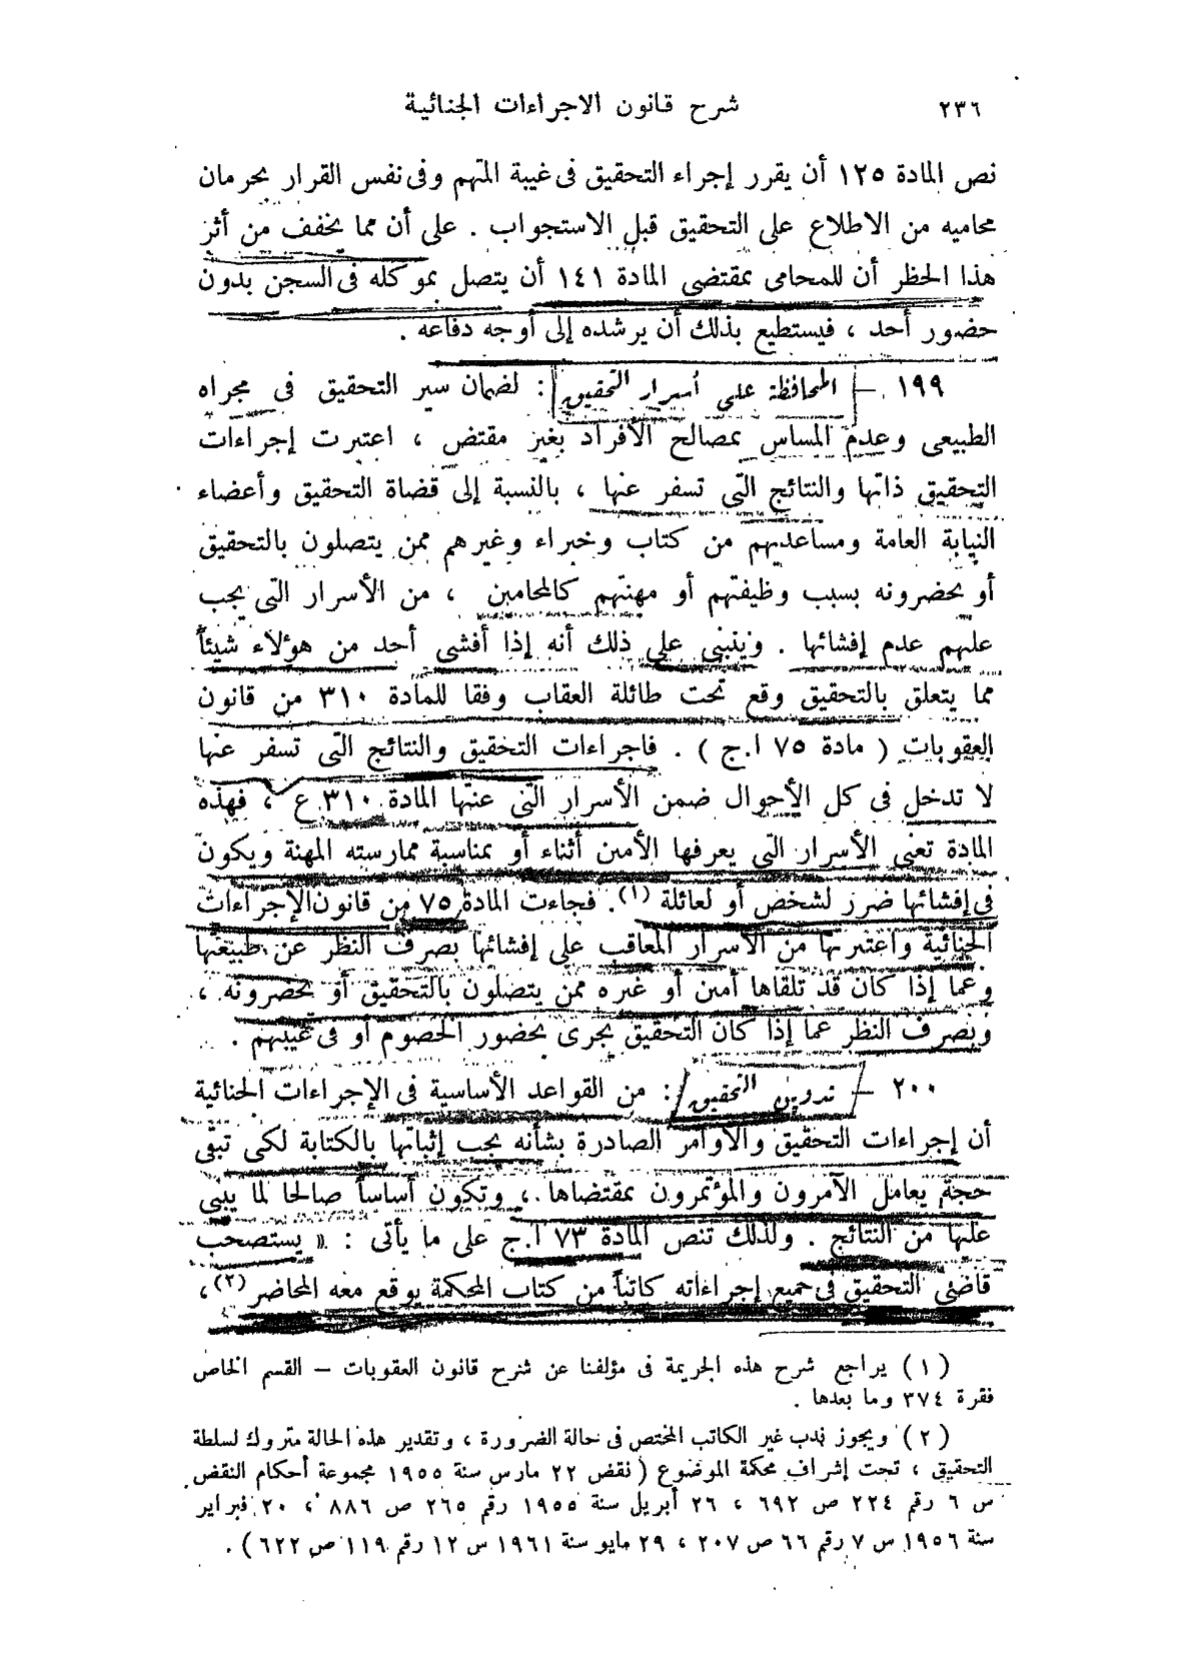 ٢٣٦ شرح قانون الاجراءات الجنائية
نص المادة ١٢٥ أن يقرر إجراء التحقيق فى غيبة المتهم وفى نفس القرار بحرمان
محاميه من الاطلاع على التحقيق قبل الاستجواب . على أن مما يخفف من أثر
هذا الحظر أن للمحامى بمقتضى المادة ١٤١ أن يتصل بموكله فى السجن بدون
حضور أحد ، فيستطيع بذلك أن يرشده إلى أوجه دفاعه .
١٩٩ — المحافظة على أسرار التحقيق : لضمان سير التحقيق فى مجراه
الطبيعى وعدم المساس بمصالح الأفراد بغير مقتض ، اعتبرت إجراءات
التحقيق ذاتها والنتائج التى تسفر عنها ، بالنسبة إلى قضاة التحقيق وأعضاء
النيابة العامة ومساعديهم من كتاب وخبراء وغيرهم ممن يتصلون بالتحقيق
أو يحضرونه بسبب وظيفتهم أو مهنتهم كالمحامين ، من الأسرار التى يجب
عليهم عدم إفشائها . وينبنى على ذلك أنه إذا أفشى أحد من هؤلاء شيئاً
مما يتعلق بالتحقيق وقع تحت طائلة العقاب وفقا للمادة ٣١٠ من قانون
العقوبات ( مادة ٧٥ ا.ج ) . فاجراءات التحقيق والنتائج التى تسفر عنها
لا تدخل فى كل الأحوال ضمن الأسرار التى عنتها المادة ٣١٠ ع ، فهذه
المادة تعنى الأسرار التى يعرفها الأمين أثناء أو بمناسبة ممارسته المهنة ويكون
فى إفشائها ضرر لشخص أو لعائلة (١) . فجاءت المادة ٧٥ من قانون الإجراءات
الجنائية واعتبرتها من الأسرار المعاقب على إفشائها بصرف النظر عن طبيعتها
وعما إذا كان قد تلقاها أمين أو غيره ممن يتصلون بالتحقيق أو يحضرونه ،
وبصرف النظر عما إذا كان التحقيق يجرى بحضور الخصوم أو فى غيبتهم .
٢٠٠ — تدوين التحقيق : من القواعد الأساسية فى الإجراءات الجنائية
أن إجراءات التحقيق والأوامر الصادرة بشأنه يجب إثباتها بالكتابة لكى تبقى
حجة يعامل الآمرون والمؤتمرون بمقتضاها ، وتكون أساساً صالحا لما يبنى
عليها من النتائج . ولذلك تنص المادة ٧٣ ا.ج على ما يأتى : « يستصحب
قاضى التحقيق فى جميع إجراءاته كاتباً من كتاب المحكمة يوقع معه المحاضر (٢) ،
(١) يراجع شرح هذه الجريمة فى مؤلفنا عن شرح قانون العقوبات — القسم الخاص
فقرة ٣٧٤ وما بعدها .
(٢) ويجوز ندب غير الكاتب المختص فى حالة الضرورة ، وتقدير هذه الحالة متروك لسلطة
التحقيق ، تحت إشراف محكمة الموضوع ( نقض ٢٢ مارس سنة ١٩٥٥ مجموعة أحكام النقض
س ٦ رقم ٢٢٤ ص ٦٩٢ ، ٢٦ أبريل سنة ١٩٥٥ رقم ٢٦٥ ص ٨٨٦ ، ٢٠ فبراير
سنة ١٩٥٦ س ٧ رقم ٦٦ ص ٢٠٧ ، ٢٩ مايو سنة ١٩٦١ س ١٢ رقم ١١٩ ص ٦٢٢ ) .